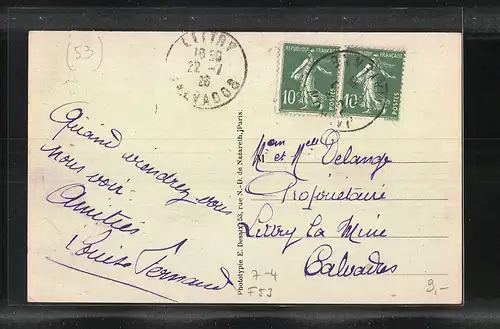 (53)
LITTRY
18 30
22 - 7
26
CALVADOS
REPUBLIQUE FRANÇAISE
10c
POSTES
10c
POSTES
Quand viendrez vous
nous voir
Amitiés
Louise Fernand
Phototypie E. Desaix, 53, rue N.-D. de Nazareth, Paris.
et Delange
Propriétaire
Littry La Mine
Calvados
7-4
F53
9,-